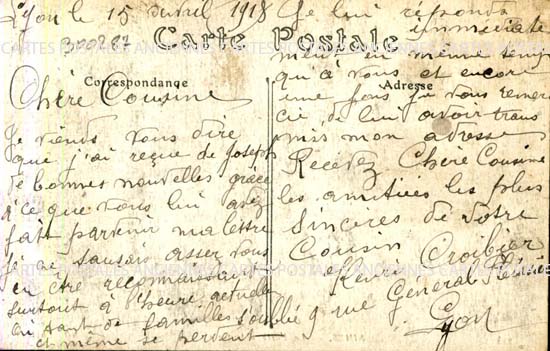 Lyon le 15 avril 1918
300287
Carte Postale
Correspondance
Chère Cousine
Je viends vous dire
que j'ai reçue de Joseph
de bonnes nouvelles grace
à ce que vous lui avez
fait parvenir ma lettre
je ne saurais assez vous
en être reconnaissant
surtout à l'heure actuelle
ou tant de familles s'oublie
et même se perdent
Je lui réponds
immédiate
ment en même temps
qu'à vous et encore
Adresse
une fois je vous remer
cie de lui avoir trans
mis mon adresse
Recevez Chère Cousine
les amitiées les plus
sincères de votre
Cousin
Henri Croibier
9 rue General
Lyon
CARTES POSTALES ANCIENNES CARTES POSTALES ANCIENNES
CARTES POSTALES ANCIENNES CARTES POSTALES ANCIENNES